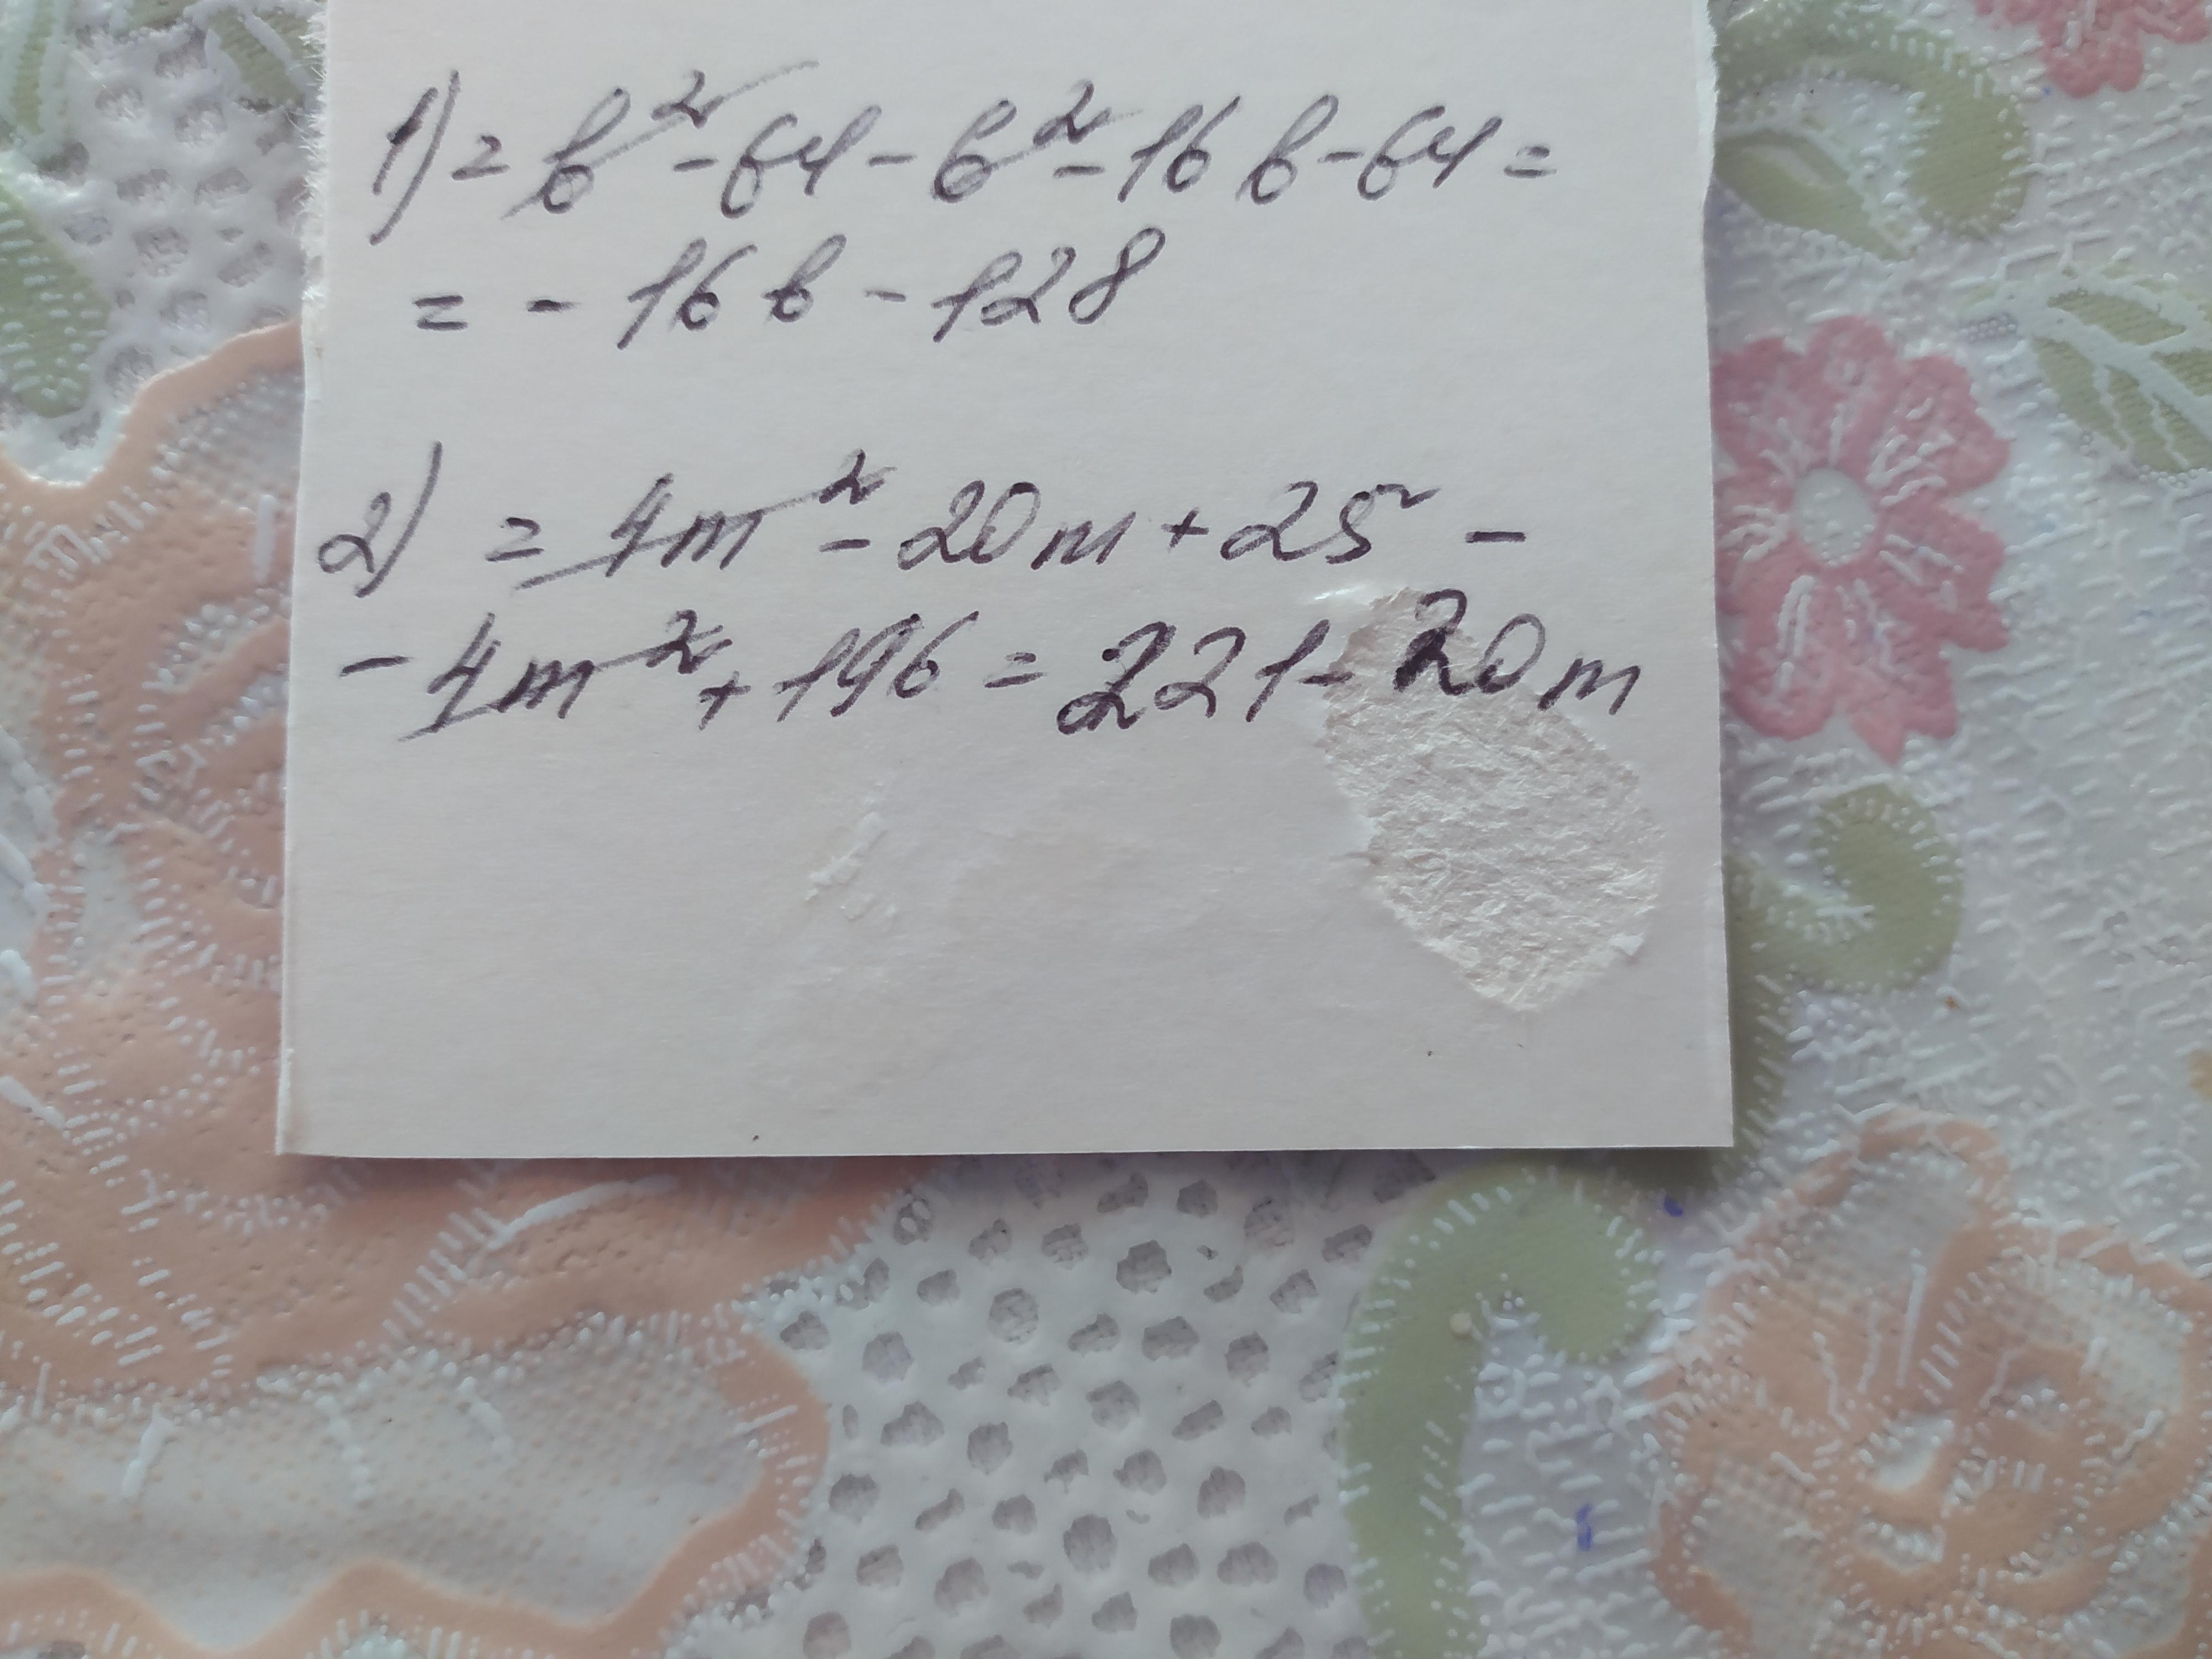 1) = b² - 64 - b² - 16b - 64 =
= - 16b - 128
2) = 4m² - 20m + 25 -
- 4m² + 196 = 221 - 20m